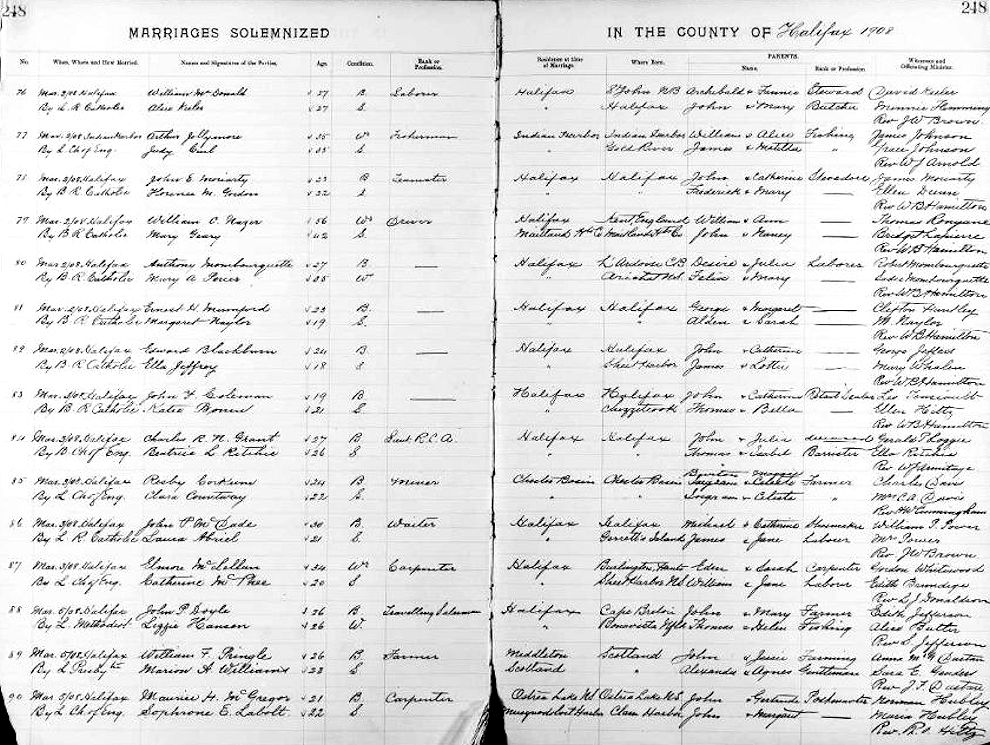 248
248
MARRIAGES SOLEMNIZED
IN THE COUNTY OF Halifax 1908
No. When, Where and How Married. Names and Signatures of the Parties. Age Condition. Rank or Profession. Residence at time of Marriage. Where Born. PARENTS. Name. Rank or Profession. Witnesses and Officiating Minister.
76 Mar. 2/08 Halifax William McDonald 27 B Laborer Halifax St John NB Archibald & Fannie Steward David
By L. R Catholic Alice 27 S " Halifax John & Mary Butcher Minnie Flemming
Rev J W Brown
77 Mar. 2/08 Indian Harbor Arthur Jollymore 35 Wr Fisherman Indian Harbor Indian Harbor William & Alice Fishing James Johnson
By L Ch of Eng. Judy 35 S " Gold River James & " Grace Johnson
Rev W J Arnold
78 Mar. 2/08 Halifax John E Moriarty 23 B Teamster Halifax Halifax John & Catherine Stevedore Jamie Moriarty
By B R Catholic Florence M. Gordon 22 S " " Frederick & Mary — Ellen Dunn
Rev W B Hamilton
79 Mar. 2/08 Halifax William O. 56 Wr Driver Halifax Kent, England William & Ann — Thomas
By B R Catholic Mary Geary 42 S Maitland Hts Co Maitland Hts Co John & Nancy — Bridget
Rev W B Hamilton
80 Mar 2/08 Halifax Anthony Mombourquette 27 B — Halifax L'Ardoise C.B Desire & Julia Laborer Robert Mombourquette
By B R Catholic Mary A Power 35 W " Arichat N.S. Felix & Mary — Sadie Mombourquette
Rev W B Hamilton
81 Mar. 2/08 Halifax Ernest H. Mumford 23 B. — Halifax Halifax George & Margaret — Clifton Huntley
By B. R Catholic Margaret Naylor 19 S. " " Alden & Sarah — M. Naylor
Rev W B Hamilton
Mar. 2/08 Halifax Edward Blackburn 24 B — Halifax Halifax John & Catherine — George Jeffers
By B R Catholic Ella Jeffrey 18 S " Sheet Harbor James & Lottie — Mary Whalen
Rev W B Hamilton
83 Mar. 2/08 Halifax John F Coleman 19 B — Halifax Halifax John & Catherine Retail Dealer Leo
By B R Catholic Katie 21 S " Chezzetcook Thomas & Bella — Ellen Hilty
Rev W B Hamilton
84 Mar. 3/08 Halifax Charles R. N. Grant 27 B Lieut. R.C.A. Halifax Halifax John & Julia deceased Gerald P Loggie
By B Ch of Eng. Beatrice L Ritchie 26 S " " Thomas & Isabel Barrister Ella Ritchie
Rev W J Armitage
85 Mar. 3/08 Halifax Rosby Corkum 24 B Miner Chester Basin Chester Basin Farmer Charles Davis
By L Ch of Eng. Clara Countway 22 S " " & Celeste Mrs C A Davis
Rev H W Cunningham
86 Mar. 3/08 Halifax John P McDade 30 B Waiter Halifax Halifax Michael & Catherine Shoemaker William T. Power
By L. R Catholic Laura Abriel 21 S " Gerrards Island James & Jane Laborer Mrs Power
Rev J W Brown
87 Mar. 3/08 Halifax Elmore McLellan 34 Wr Carpenter Halifax Burlington, Hants Eden & Sarah Carpenter Gordon Whitewood
By L Ch of Eng. Catherine McPhee 20 S " Sheet Harbor N.S William & Jane Laborer Edith Brundige
Rev S. J Donaldson
88 Mar. 5/08 Halifax John P. Doyle 26 B. Travelling Salesman Halifax Cape Breton John & Mary Farmer Edith Jefferson
By L Methodist Lizzie Hanson 26 W. " Bonavista Nfld Thomas & Helen Fishing Alice Butler
Rev S. Jefferson
89 Mar. 5/08 Halifax William F. Pringle 26 B Farmer Middleton Scotland John & Jessie Farming Anna McW Dustan
By L Presbytn Marion A. Williams 23 S Scotland " Alexander & Agnes Gentleman Sara E. Sanders
Rev J. F. Dustan
90 Mar. 5/08 Halifax Maurice H. McGregor 21 B Carpenter Ostrea Lake N.S Ostrea Lake N.S. John & Gertrude Postmaster Norman Hubley
By L. Ch of Eng. Sophrone E. Labolt 22 S Clam Harbor John & Margaret — Maria Hubley
Rev. R. O Hiltz